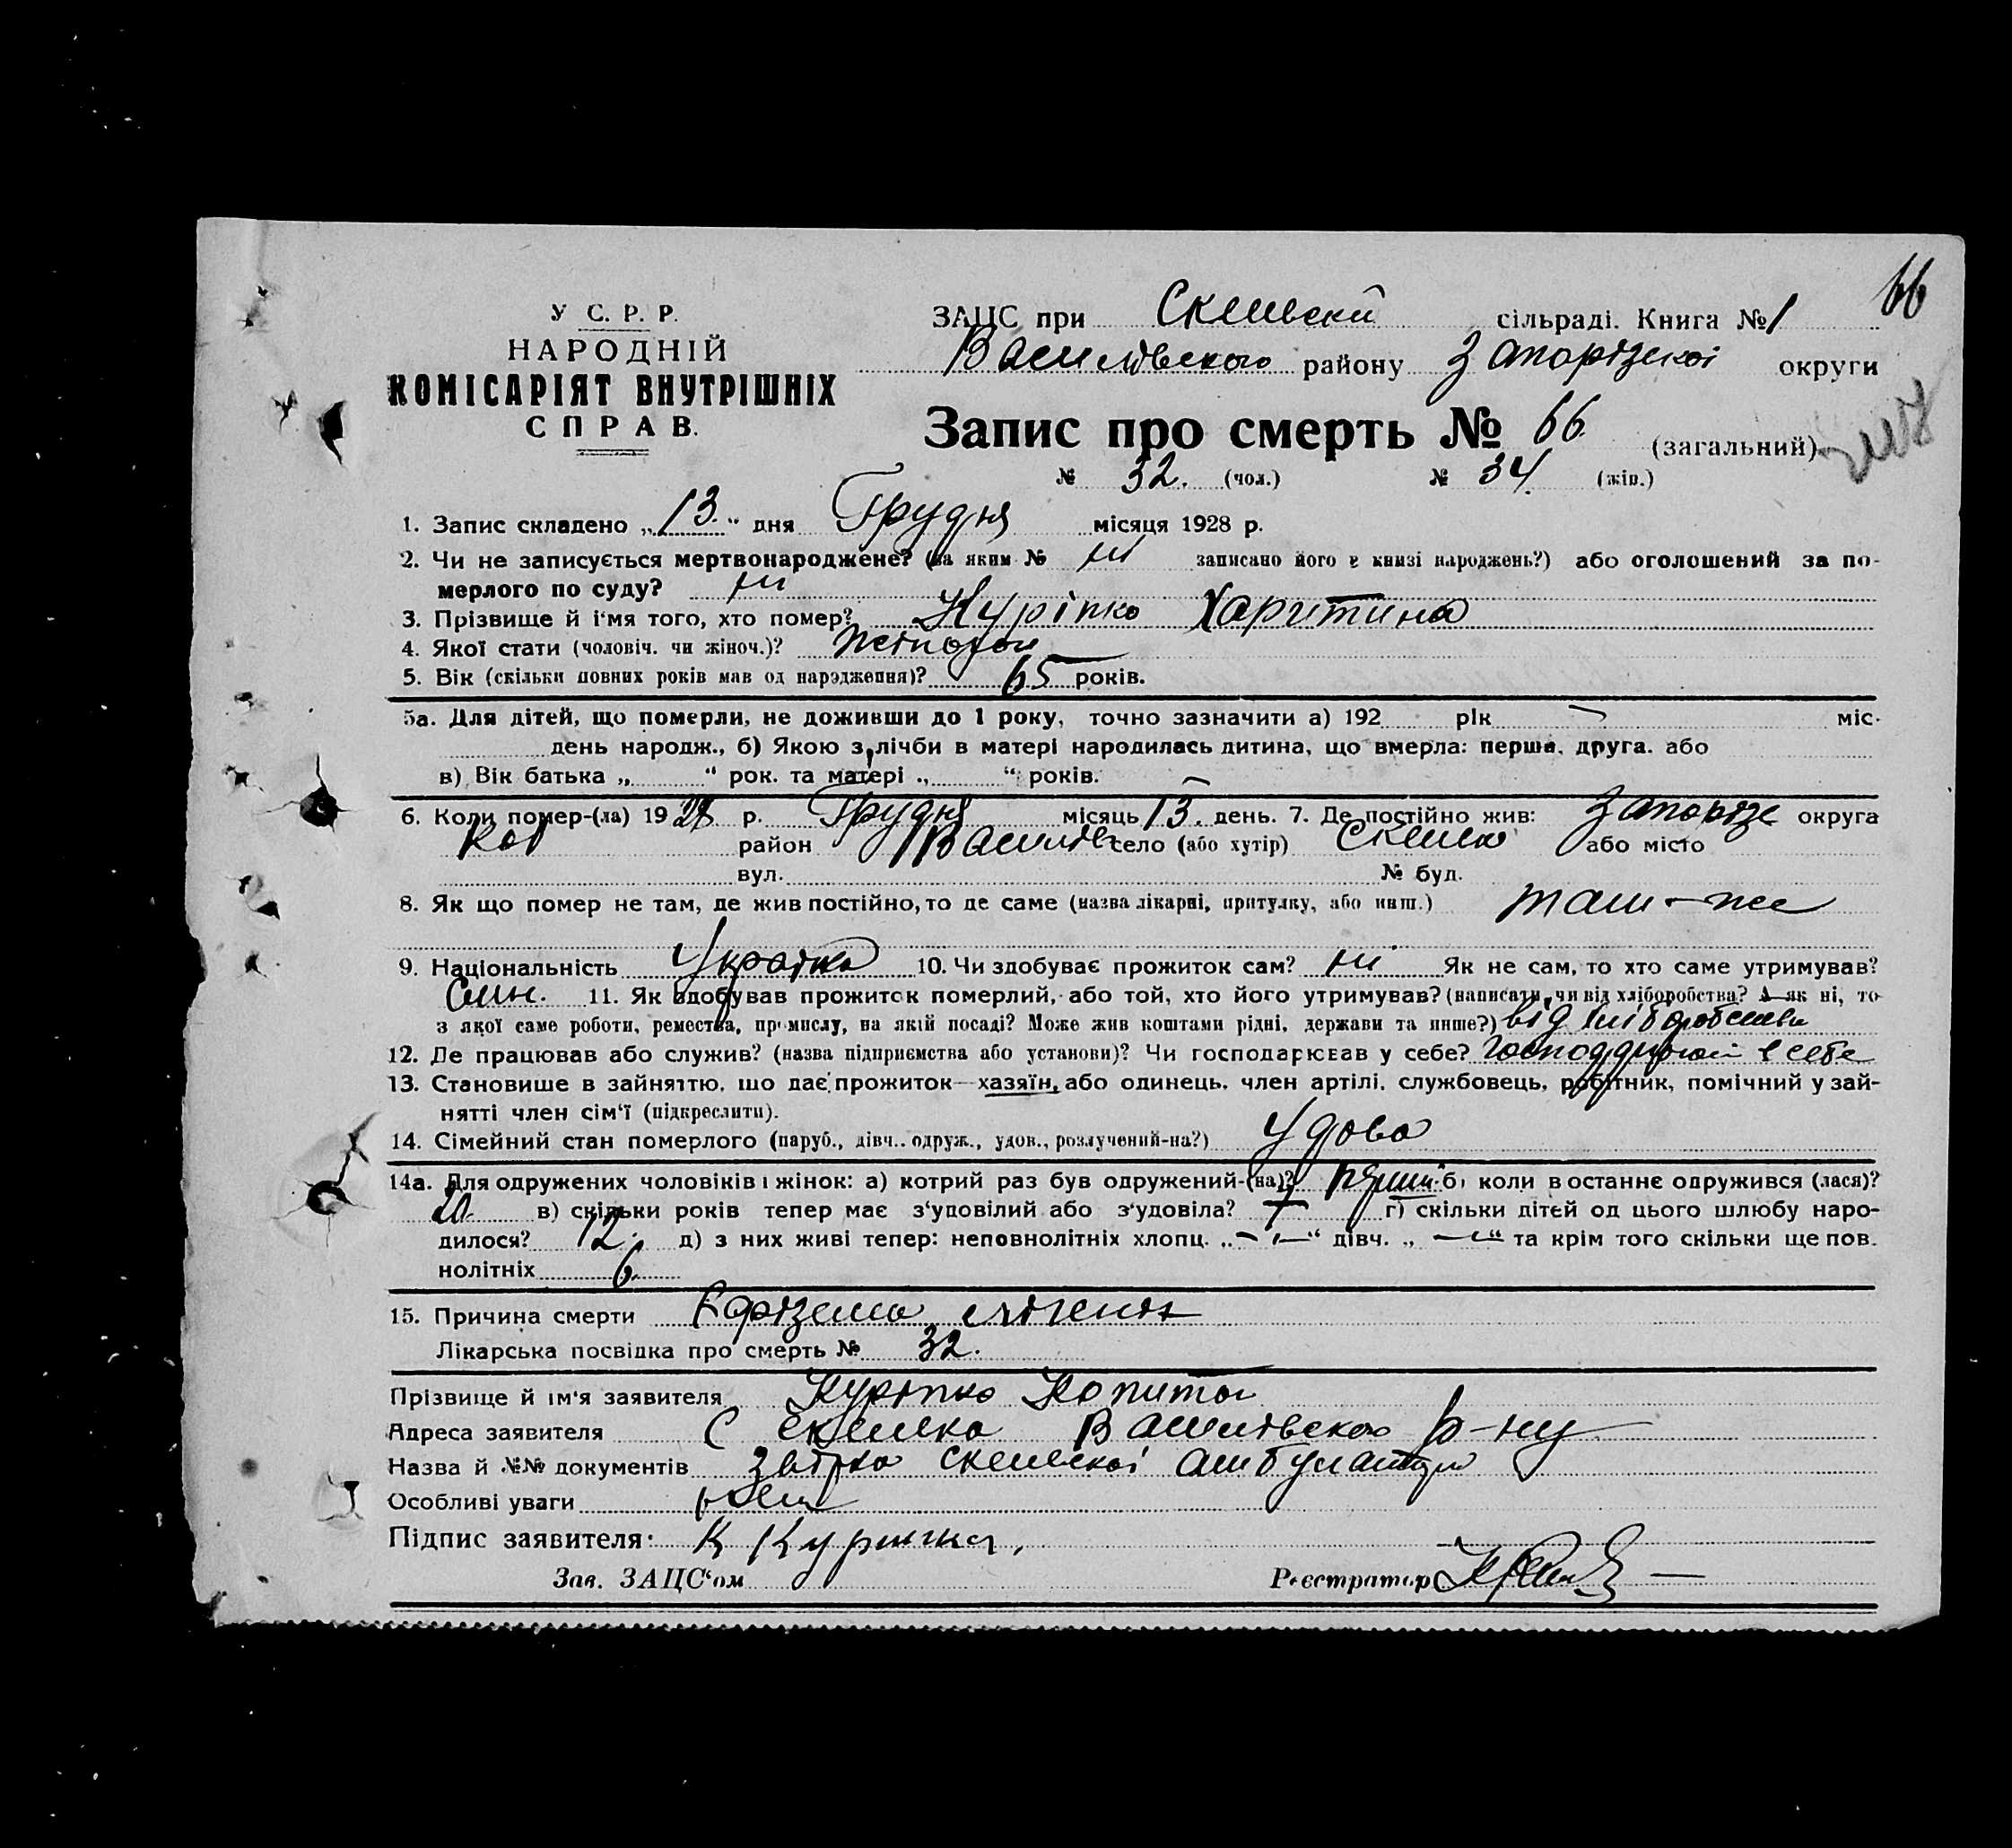 66
У С. Р. Р.
НАРОДНІЙ
КОМІСАРІЯТ ВНУТРІШНІХ
СПРАВ.
ЗАЦС при Скельскій сільраді. Книга № 1
Василівського району Запорізської округи
Запис про смерть № 66 (загальний)
№ 32. (чол.) № 34. (жін.)
1. Запис складено „13.“ дня Грудня місяця 1928 р.
2. Чи не записується мертвонароджене? (за яким № ні записано його в книзі народжень?) або оголошений за по-
мерлого по суду? ні
3. Прізвище й ім'я того, хто помер? Куріпко Харитина
4. Якої стати (чоловіч. чи жіноч.)?
5. Вік (скільки повних років мав од народження)? 65 років.
5а. Для дітей, що померли, не доживши до 1 року, точно зазначити а) 192 рік міс.
день народж., б) Якою з лічби в матері народилась дитина, що вмерла: перша, друга. або
в) Вік батька „ “ рок. та матері „ “ років.
6. Коли помер-(ла) 1928 р. Грудня місяць 13. день. 7. Де постійно жив: Запорізс округа
кої район Василів село (або хутір) Скельки або місто
вул. № буд.
8. Як що помер не там, де жив постійно, то де саме (назва лікарні, притулку, або инш.) там-же
9. Національність Українка 10. Чи здобуває прожиток сам? ні Як не сам, то хто саме утримував?
Син. 11. Як здобував прожиток померлий, або той, хто його утримував? (написати, чи від хліборобства? А як ні, то
з якої саме роботи, ремества, промислу, на якій посаді? Може жив коштами рідні, держави та инше?) від хліборобства
12. Де працював або служив? (назва підприємства або установи)? Чи господарював у себе? в себе
13. Становище в зайнятті, що дає прожиток—хазяїн, або одинець, член артілі, службовець, робітник, помічний у зай-
нятті член сім'ї (підкреслити).
14. Сімейний стан померлого (паруб., дівч.. одруж., удов., розлучений-на?) Удова
14а. Для одружених чоловіків і жінок: а) котрий раз був одружений-(на)? перший б) коли востаннє одружився (лася)?
20 в) скільки років тепер має з'удовілий або з'удовіла? г) скільки дітей од цього шлюбу наро-
дилося? 12. д) з них живі тепер: неповнолітніх хлопц. „—“ дівч. „—“ та крім того скільки ще пов.
нолітніх 6.
15. Причина смерти легенів
Лікарська посвідка про смерть № 32.
Прізвище й ім'я заявителя Куріпко Копитон
Адреса заявителя С Скелька Василівського р-ну
Назва й №№ документів Звідка Скельської амбулаторії
Особливі уваги
Підпис заявителя: К Курипка.
Зав. ЗАЦС'ом Реєстратор